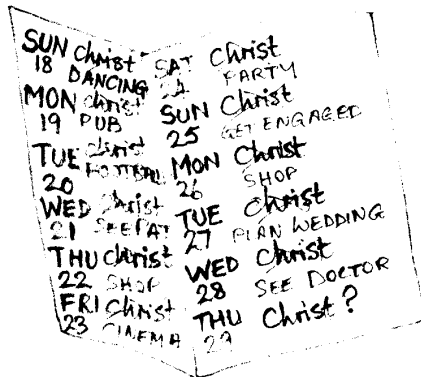 SUN Christ
18 DANCING
MON Christ
19 PUB
TUE Christ
20 FOOTBALL
WED Christ
21 SEE PAT
THU Christ
22 SHOP
FRI Christ
23 CINEMA
SAT Christ
24 PARTY
SUN Christ
25 GET ENGAGED
MON Christ
26 SHOP
TUE Christ
27 PLAN WEDDING
WED Christ
28 SEE DOCTOR
THU Christ?
29